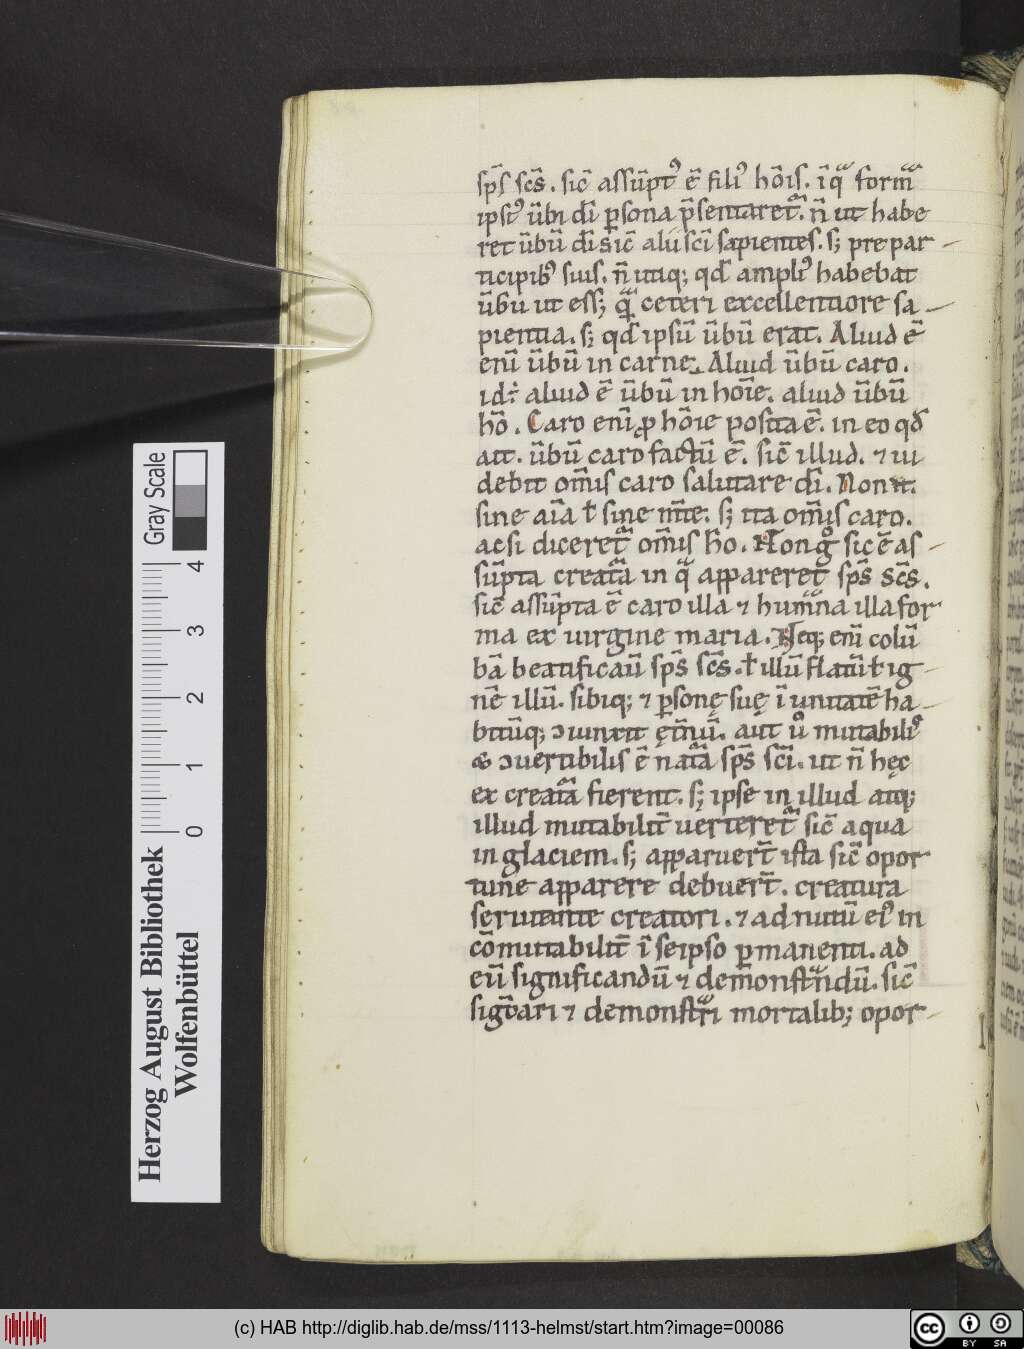 sp̄s sc̄s. sic̄ assūpt᷒ ē fili᷒ hōis. ī qᷓ formᷓ
ipsi᷒ ūbi dī p̄sona p̄sentaretᷓ. n̄ ut habe
ret ūbū dī sic̄ alii sc̄i sapientes. s; pre par
ticipib᷒ suis. n̄ utiq; qd̄ ampli᷒ habebat
ūbū ut ess; qᷓ ceteri excellentiore sa
pientia. s; qd̄ ipsū ūbū erat. Aliud ē
enī ūbū in carne. Aliud ūbū caro.
id; aliud ē ūbū in hoīe. aliud ūbū
hō. Caro enī ꝓ hōie posita ē. in eo qd̄
ait. ūbū caro factū ē. sic̄ illud. ⁊ ui
debit om̄is caro salutare dī. Non ū.
sine aīa ƚ sine m̄te. s; ita om̄is caro.
acsi diceretᷓ om̄is hō. Non gͦ sic ē as
sūpta creatᷓa in qᷓ appareret sp̄s sc̄s.
sic̄ assūpta ē caro illa ⁊ humᷓna illa for
ma ex uirgine maria. Neq; enī colū
bā beatificauī sp̄s sc̄s. ƚ illū flatū ƚ ig
nē illū. sibiq; ⁊ p̄sonę suę ī unitatē ha
bitūq; ɔiunxit ęt̄nū. aut ūͦ mutabilis
& ɔuertibilis ē natᷓa sp̄s sc̄i. ut n̄ hęc
ex creatᷓa fierent. s; ipse in illud atq;
illud mutabilit̄ uerteretᷓ sic̄ aqua
in glaciem. s; apparuer̄t ista sic̄ opor
tune apparere debuer̄t. creatura
seruiente creatori. ⁊ ad nutū ei᷒ in
cōmutabilit̄ ī seipso p̄manenti. ad
eū significandū ⁊ demonstᷓndū. sic̄
sigc̄ari ⁊ demonstᷓri mortalib; opor
Gray Scale
4
3
2
1
0
Herzog August Bibliothek
Wolfenbüttel
(c) HAB http://diglib.hab.de/mss/1113-helmst/start.htm?image=00086
cc
BY SA